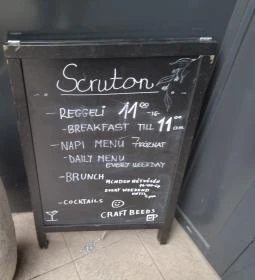 Scruton
- REGGELI 11⁰⁰-IG
- BREAKFAST TILL 11
- NAPI MENÜ
- DAILY MENU
EVERY WEEKDAY
- BRUNCH MINDEN HÉTVÉGÉN
EVERY WEEKEND
UNTIL
- COCKTAILS
CRAFT BEERS